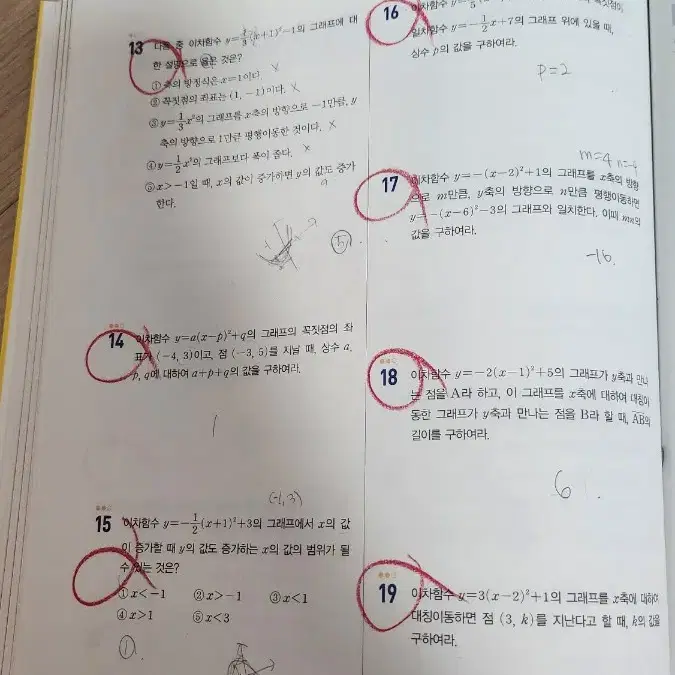 13 다음 중 이차함수 y=1/3(x+1)²-1의 그래프에 대
한 설명으로 옳은 것은?
① 축의 방정식은 x=1이다. ×
② 꼭짓점의 좌표는 (1, -1)이다. ×
③ y=1/3x²의 그래프를 x축의 방향으로 -1만큼, y
축의 방향으로 1만큼 평행이동한 것이다. ×
④ y=1/2x²의 그래프보다 폭이 좁다. ×
⑤ x>-1일 때, x의 값이 증가하면 y의 값도 증가
한다.
⑤
14 이차함수 y=a(x-p)²+q의 그래프의 꼭짓점의 좌
표가 (-4, 3)이고, 점 (-3, 5)를 지날 때, 상수 a,
p, q에 대하여 a+p+q의 값을 구하여라.
1
(-1, 3)
15 이차함수 y=-1/2(x+1)²+3의 그래프에서 x의 값
이 증가할 때 y의 값도 증가하는 x의 값의 범위가 될
수 있는 것은?
① x<-1 ② x>-1 ③ x<1
④ x>1 ⑤ x<3
①.
16 이차함수
일차함수 y=-1/2x+7의 그래프 위에 있을 때,
상수 p의 값을 구하여라.
p=2
m=4
17 이차함수 y=-(x-2)²+1의 그래프를 x축의 방향
으로 m만큼, y축의 방향으로 n만큼 평행이동하면
y=-(x-6)²-3의 그래프와 일치한다. 이때 mn의
값을 구하여라.
-16.
18 이차함수 y=-2(x-1)²+5의 그래프가 y축과 만나
는 점을 A라 하고, 이 그래프를 x축에 대하여 대칭이
동한 그래프가 y축과 만나는 점을 B라 할 때, AB의
길이를 구하여라.
6.
19 이차함수 y=3(x-2)²+1의 그래프를 x축에 대하여
대칭이동하면 점 (3, k)를 지난다고 할 때, k의 값을
구하여라.